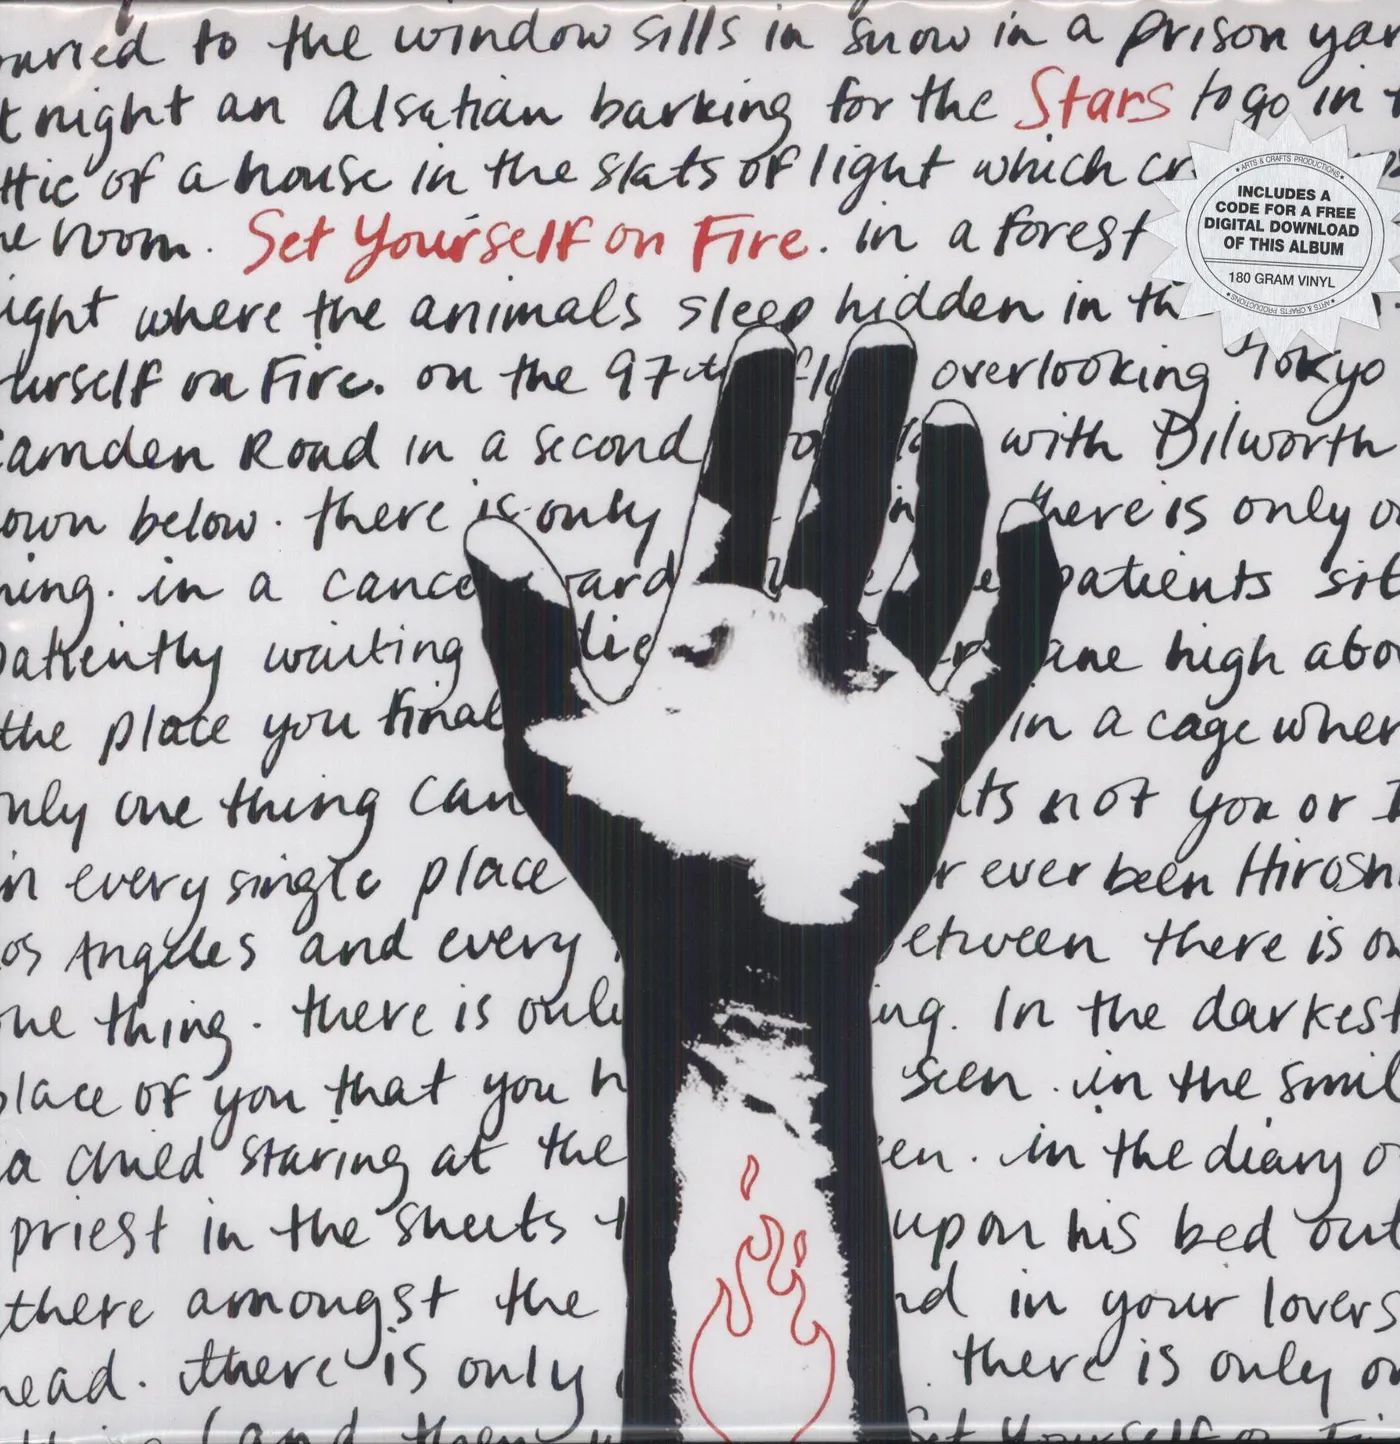 to the window sills in snow in a prison
night an Alsatian barking for the Stars to go in
of a house in the slats of light which
room. Set Yourself on Fire. in a forest
where the animals sleep hidden in
on Fire. on the 97th overlooking Tokyo
Camden Road in a second with Dilworth
below. there is only there is only
in a patients sit
patiently waiting high
the place you in a cage
one thing can not you or
in every single place ever been
Angeles and every there is
one thing. there is In the darkest
place of you that you seen. in the
a child staring at the in the diary
priest in the sheets upon his bed
there amongst the in your lovers
there is only there is only
Set Yourself
ARTS & CRAFTS PRODUCTIONS
INCLUDES A
CODE FOR A FREE
DIGITAL DOWNLOAD
OF THIS ALBUM
180 GRAM VINYL
ARTS & CRAFTS PRODUCTIONS